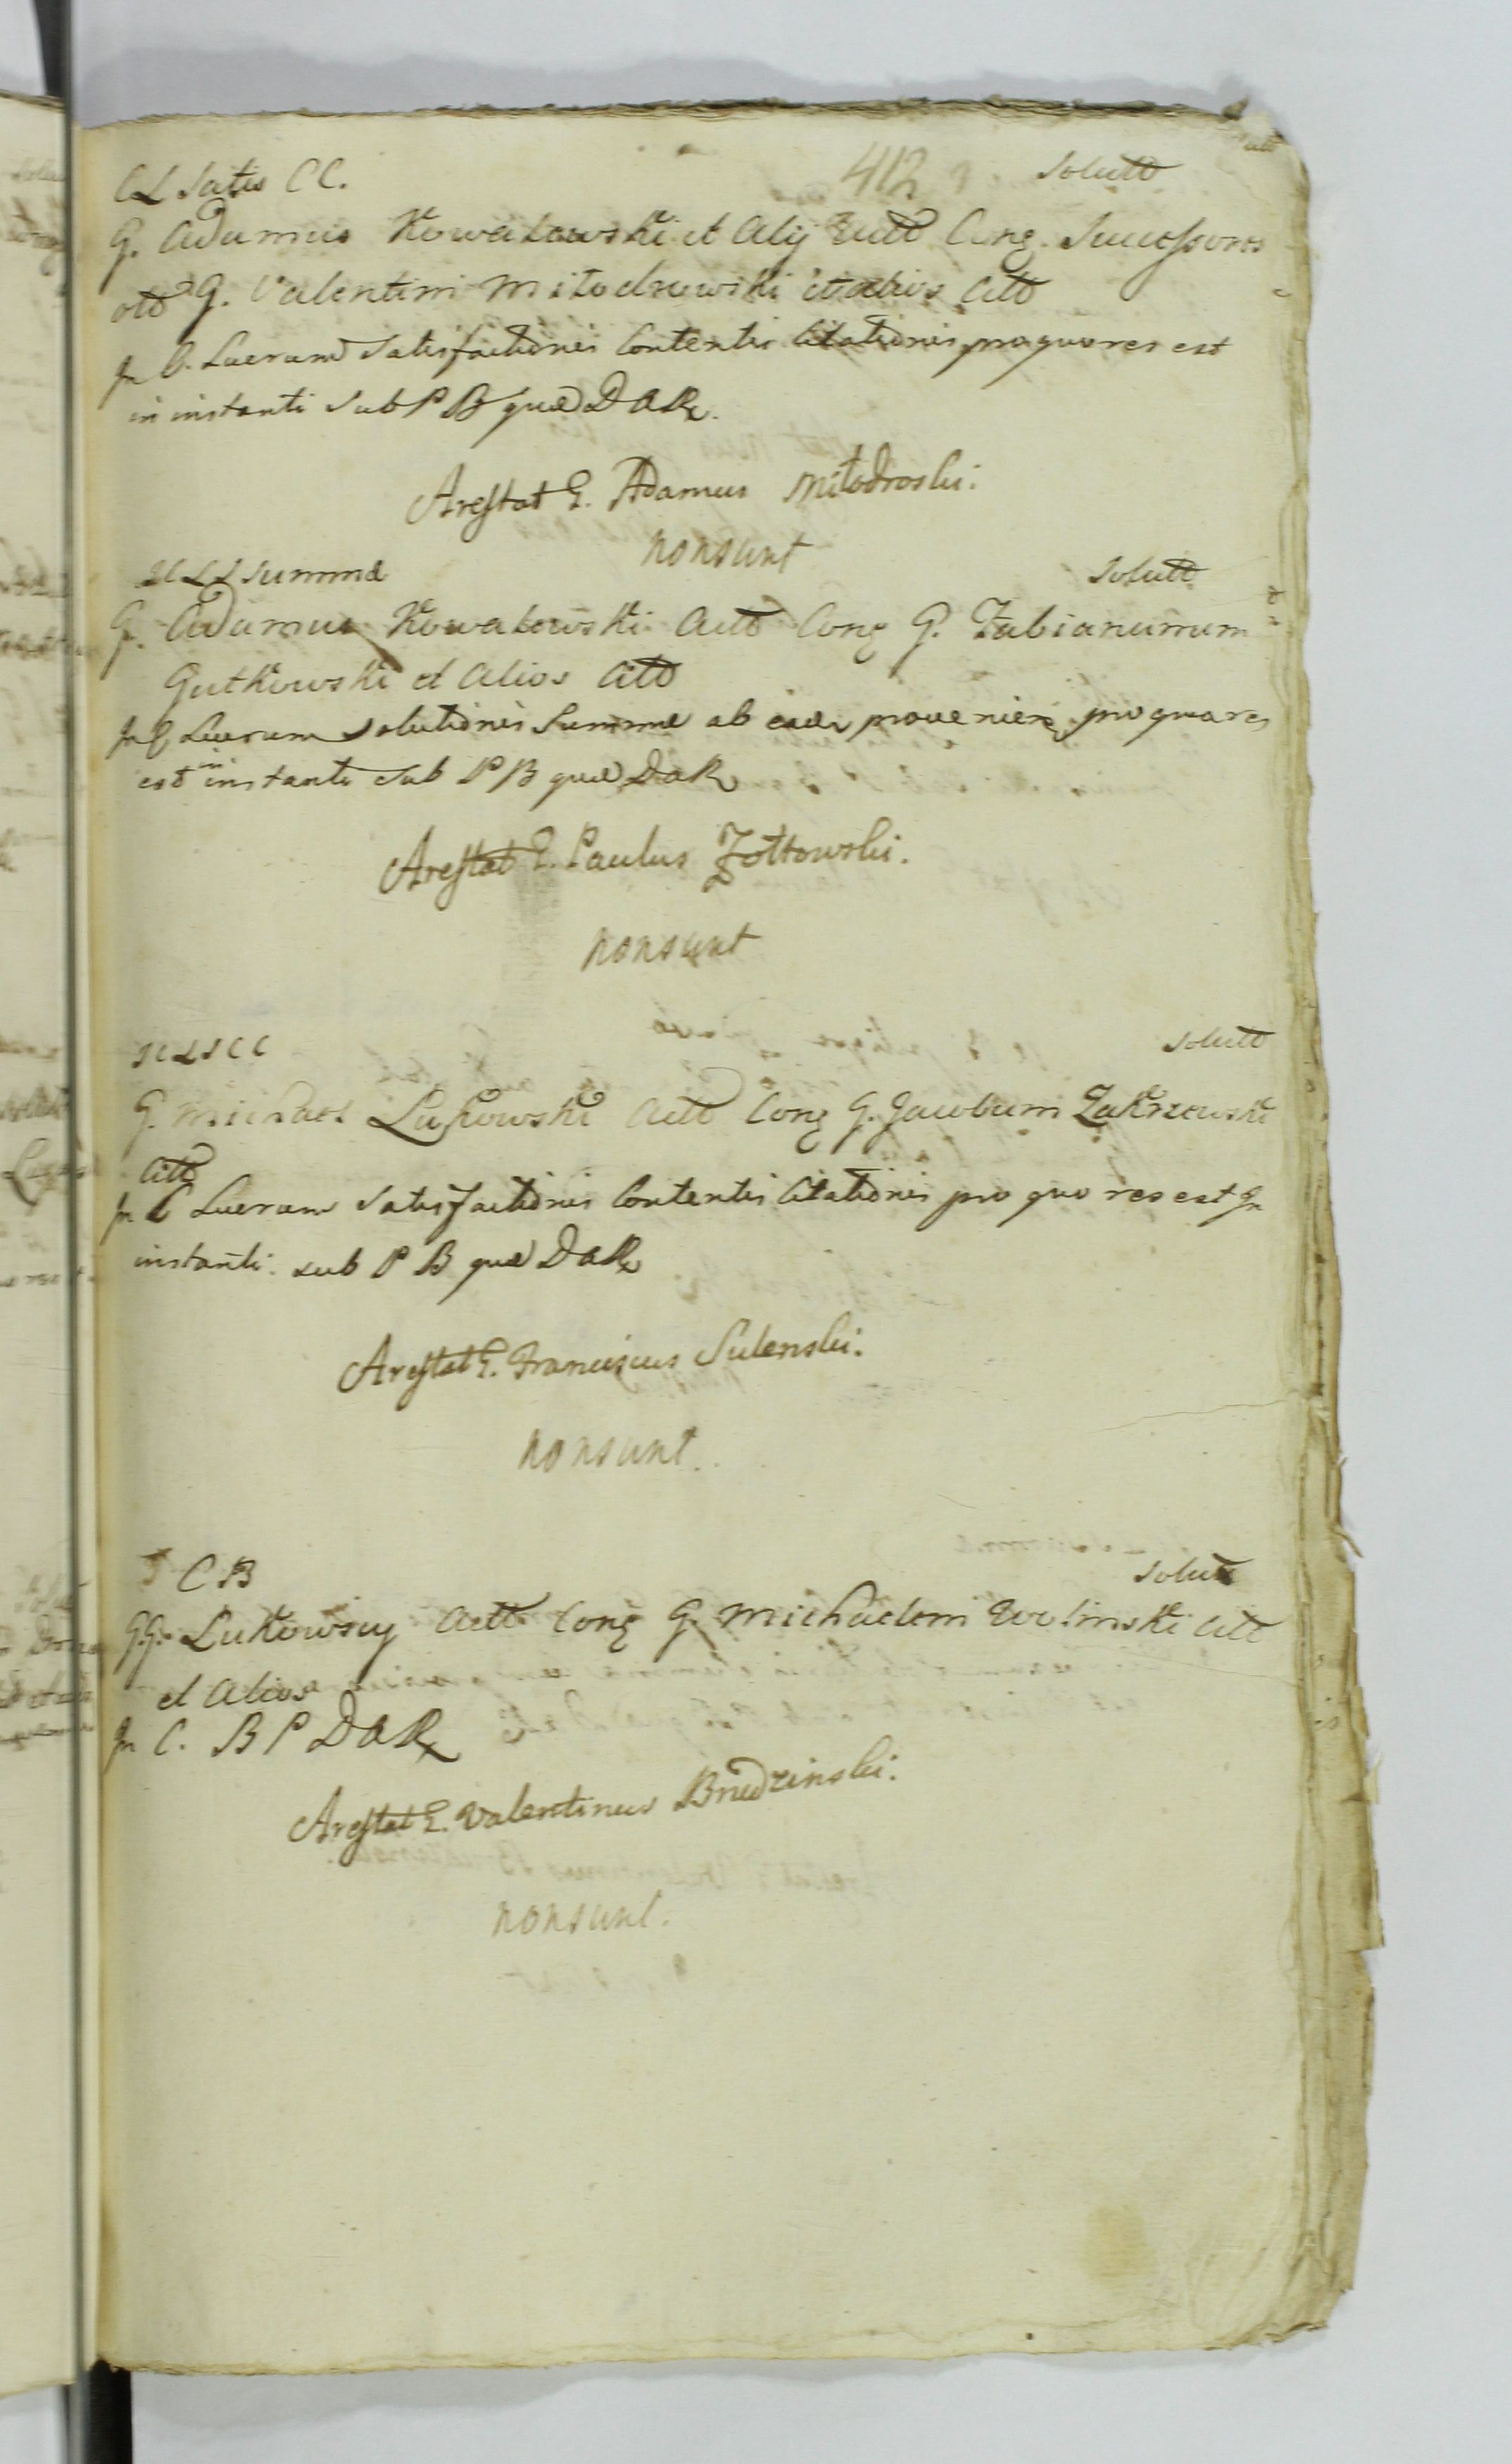 412
CL Satis CC. Solutt
G. Adamus Kowalewski et Alij Actt Cong. Successores
G. Valentini Mitodrowski et alios Citt
In C. Lucrum Satisfactionis Contentis Citationis pro quo res est
in instanti Sub P B quæ DAR
Arestat G. Adamus Mitodroski.
non sunt
SCLS Summæ Solutt
G. Adamus Kowalewski Actt Cong G. Fabianum
Gutkowski et Alios Citt
In C Lucrum Solutionis Summæ ab eadem pro quo res
est in instanti Sub P B quæ DaR
Arestat G. Paulus Zottowski.
non sunt
SCLSCC Solutt
G. Michael Lukowski Actt Cong G. Jacobum Zakrzewski
Citt
In C Lucrum Satisfactionis Contentis Citationis pro quo res est In
instanti sub P B quæ DaR
Arestat G. Franciscus Sulenski.
non sunt.
CB Solutt
GG. Lukowscy Actt Cong G. Michaelem Wolinski Citt
et Alios
In C. B P DAR
Arestat G. Valentinus Brudzinski.
non sunt.